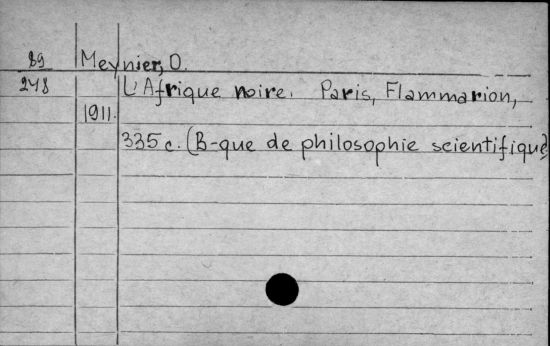 89 Meynier, O.
248 L'Afrique noire. Paris, Flammarion,
1911.
335 c. (B-que de philosophie scientifique)